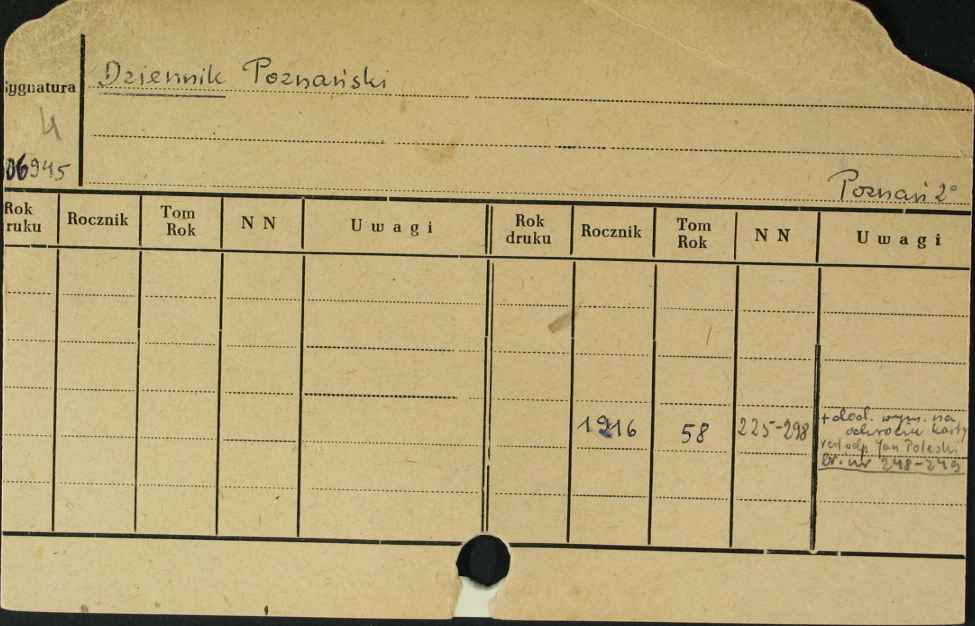 Dziennik Poznański
Sygnatura
4
06945
Poznań 2°
Rok druku Rocznik Tom Rok N N Uwagi Rok druku Rocznik Tom Rok N N Uwagi
1916 58 225-298 + dod. wym. na
odwrocie karty
red. odp. Jan Poleski
Br. nr 248-249